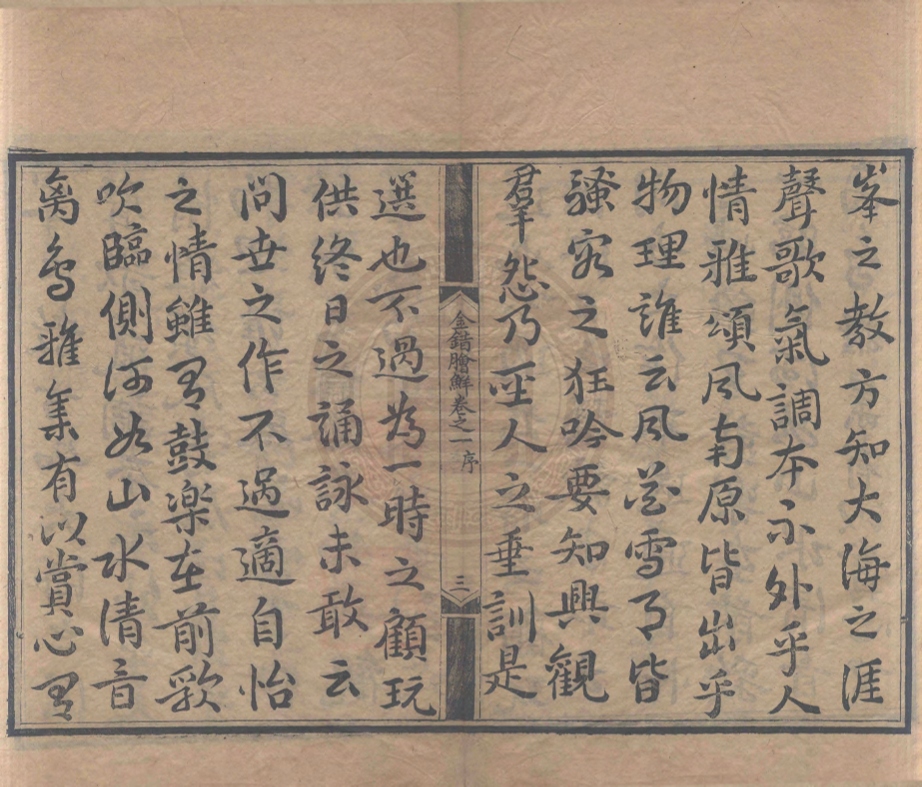 峯之教方知大海之涯
聲歌氣調本不外乎人
情雅頌風南原皆出乎
物理誰云風花雪月皆
騷客之狂吟要知興觀
羣怨乃聖人之垂訓是
金錯膾鮮卷之一序
三
選也不過為一時之顧玩
供終日之誦詠未敢云
問世之作不過適自怡
之情雖有鼓樂在前歌
吹臨側何如山水清音
禽鳥雅集有以賞心有